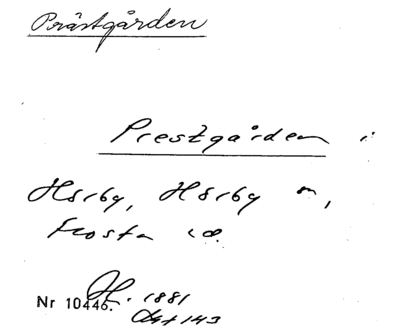 Prästgården
Prestgården i
Hörby, Hörby sn,
Frosta hd.
Nr 10446. 1881